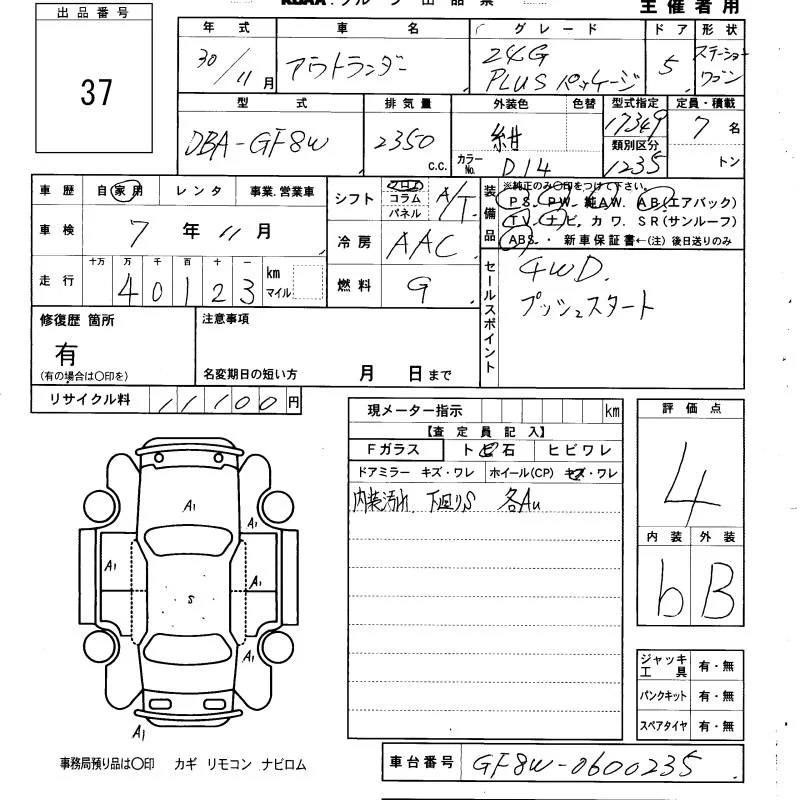 出品番号
37
主催者用
年式 車名 グレード ドア 形状
30/11月 アウトランダー 24G PLUSパッケージ 5 ステーションワゴン
型式 排気量 外装色 色替 型式指定 定員・積載
DBA-GF8W 2350 c.c. 紺 17349 7名
カラーNo. D14 類別区分 1235 トン
車歴 自家用 レンタ 事業.営業車
車検 7年11月
走行 十万 万 千 百 十 一 km マイル
40123
シフト フロア コラム パネル A/T
冷房 AAC
燃料 G
装備品 ※純正のみ〇印をつけて下さい。
PS. PW. 純AW. AB(エアバック)
TV. ナビ. カワ. SR(サンルーフ)
ABS. ・ 新車保証書←(注) 後日送りのみ
セールスポイント
4WD.
プッシュスタート
修復歴 箇所
有
(有の場合は〇印を)
注意事項
名変期日の短い方 月 日まで
リサイクル料 11100円
現メーター指示 km
【査定員記入】
Fガラス トビ石 ヒビワレ
ドアミラー キズ・ワレ ホイール(CP) キズ・ワレ
内装汚れ 下回りS 各Au
評価点
4
内装 外装
b B
A1
A1
A1
A1
S
A1
A1
A1
ジャッキ工具 有・無
パンクキット 有・無
スペアタイヤ 有・無
事務局預り品は〇印 カギ リモコン ナビロム
車台番号 GF8W-0600235